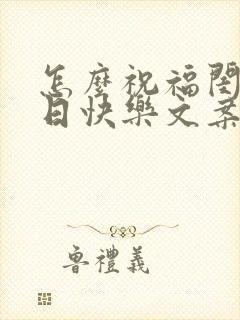 怎麼祝福閨
日快樂文案
魯禮義